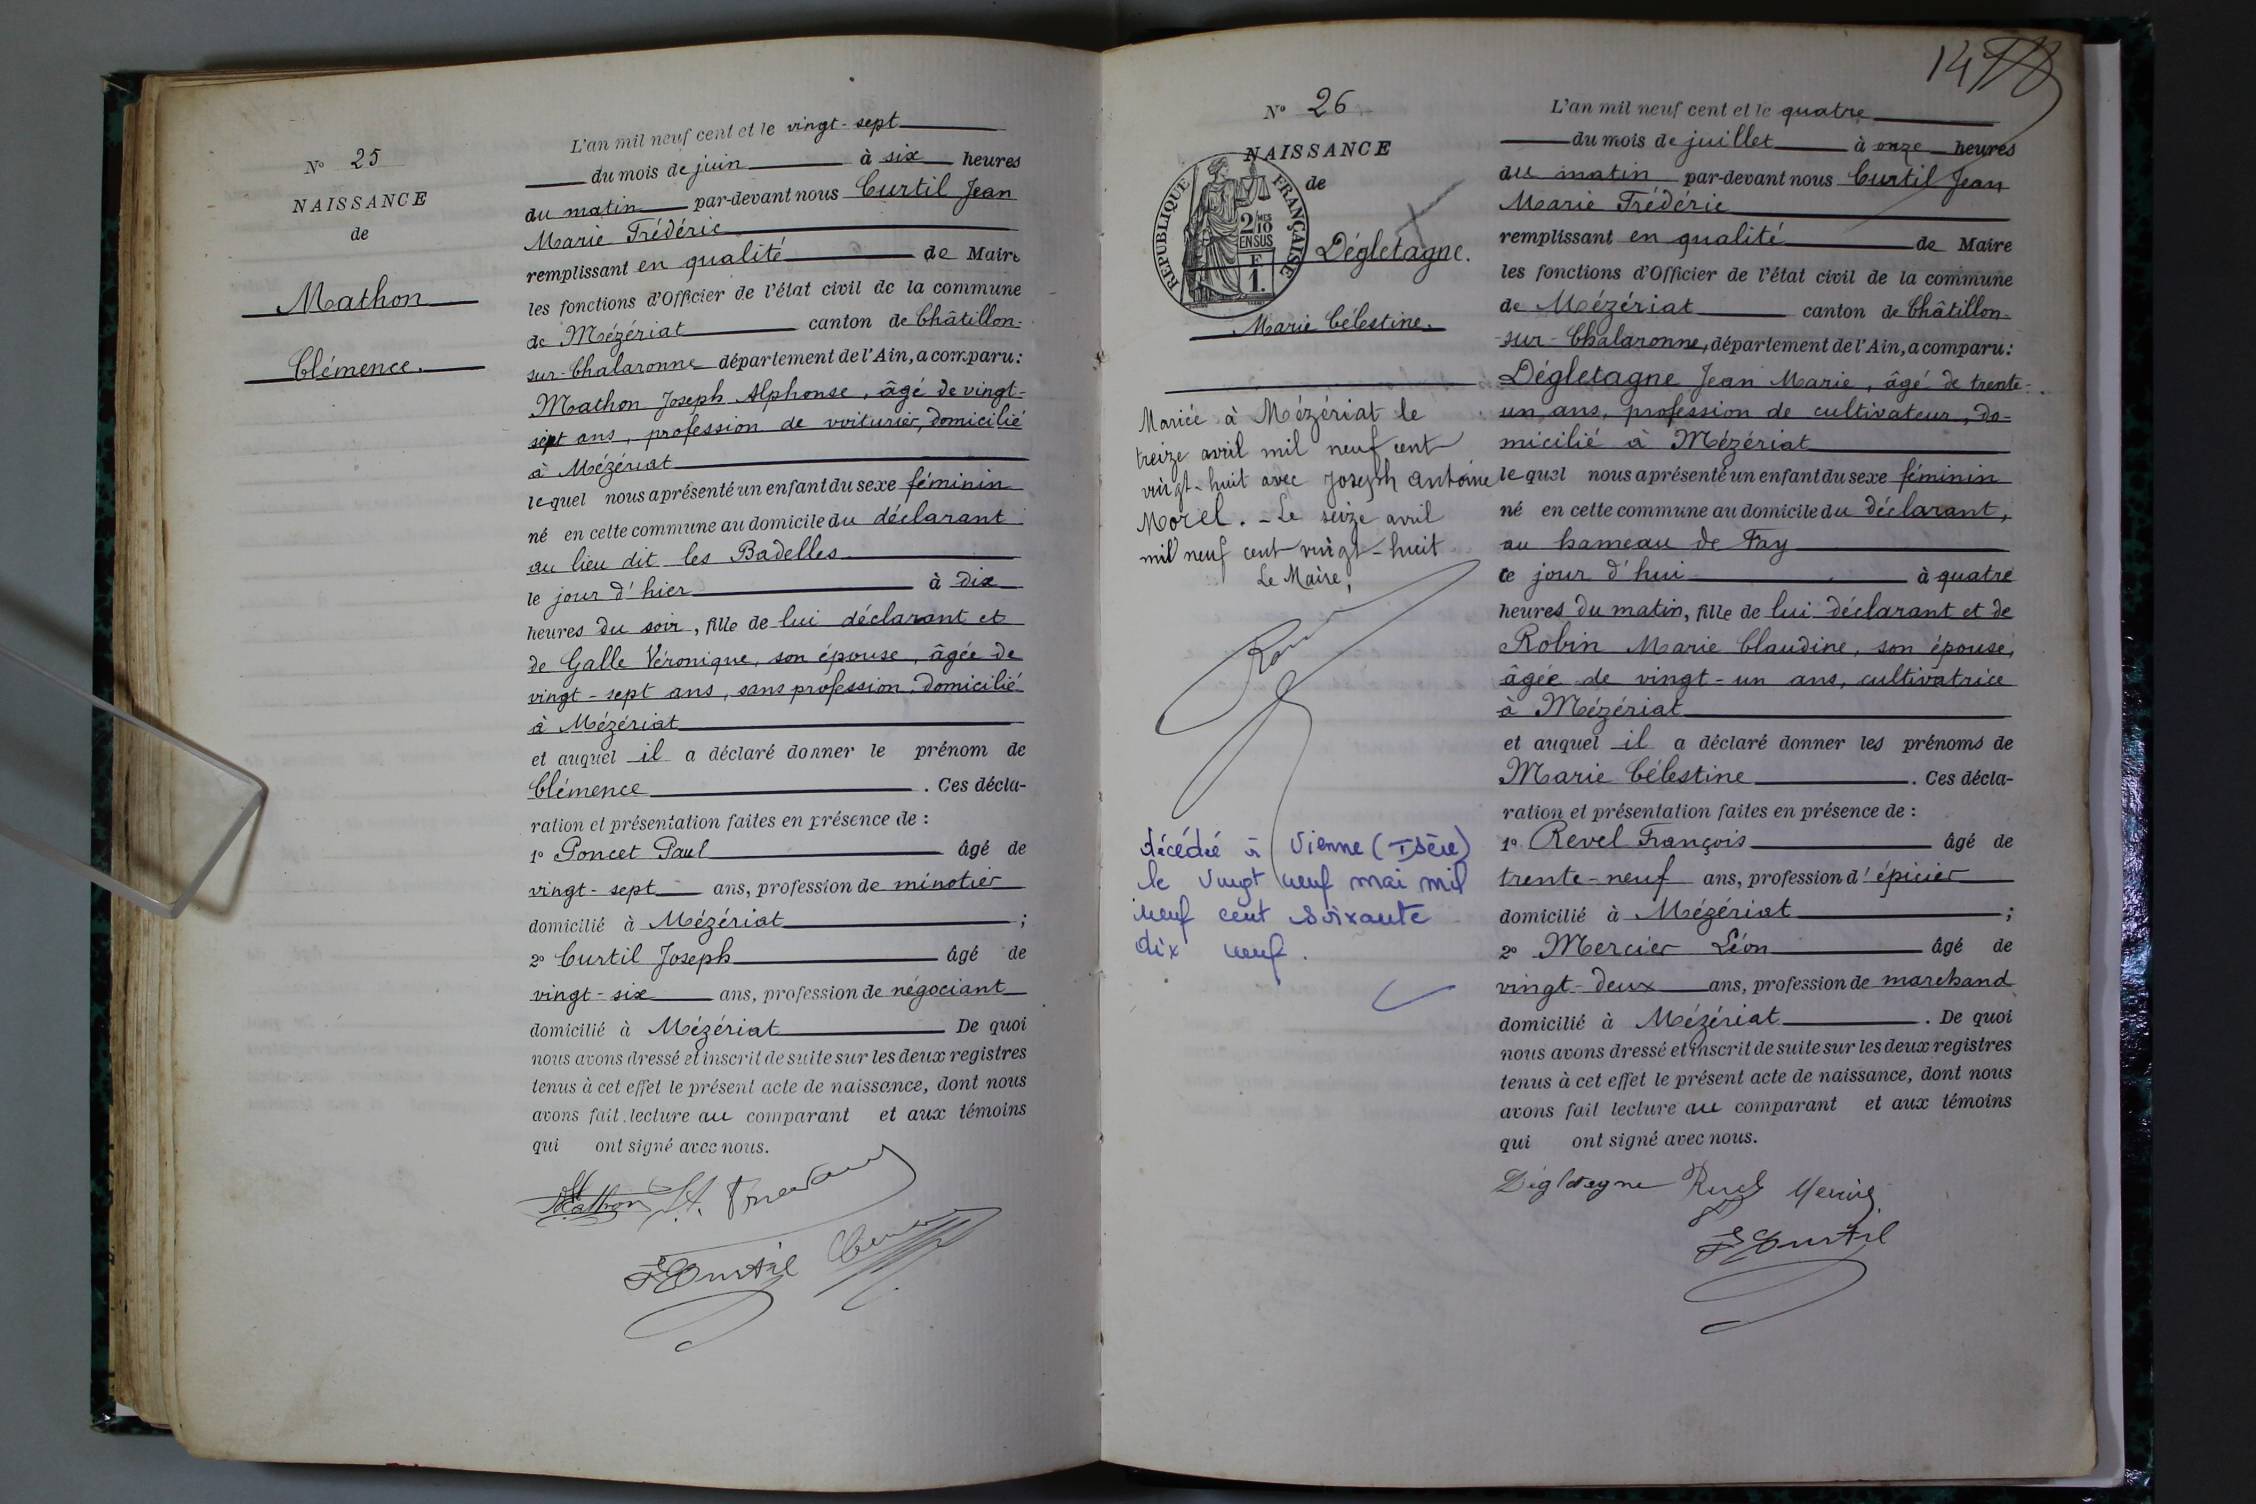 N° 25
NAISSANCE
de
Mathon
Clémence.
L'an mil neuf cent et le vingt-sept
du mois de juin à six heures
du matin par-devant nous Curtil Jean
Marie Frédéric
remplissant en qualité de Maire
les fonctions d'Officier de l'état civil de la commune
de Mézériat canton de Châtillon-
sur-Chalaronne département de l'Ain, a comparu:
Mathon Joseph Alphonse, âgé de vingt-
sept ans, profession de voiturier, domicilié
à Mézériat
lequel nous a présenté un enfant du sexe féminin
né en cette commune au domicile du déclarant
au lieu dit les Badelles
le jour d'hier à dix
heures du soir, fille de lui déclarant et
de Galle Véronique, son épouse, âgée de
vingt-sept ans, sans profession, domicilié
à Mézériat
et auquel il a déclaré donner le prénom de
Clémence. Ces décla-
ration et présentation faites en présence de :
1° Poncet Paul âgé de
vingt-sept ans, profession de minotier
domicilié à Mézériat ;
2° Curtil Joseph âgé de
vingt-six ans, profession de négociant
domicilié à Mézériat De quoi
nous avons dressé et inscrit de suite sur les deux registres
tenus à cet effet le présent acte de naissance, dont nous
avons fait lecture au comparant et aux témoins
qui ont signé avec nous.
Mathon
Curtil
14
N° 26
NAISSANCE
de
RÉPUBLIQUE FRANÇAISE
2/10MES
EN SUS
F
1.
Dégletagne.
Marie Célestine.
Mariée à Mézériat le
treize avril mil neuf cent
vingt-huit avec Joseph Antoine
Morel. - Le seize avril
mil neuf cent vingt-huit
Le Maire,
décédée à Vienne (Isère)
le vingt neuf mai mil
neuf cent soixante
dix neuf.
L'an mil neuf cent et le quatre
du mois de juillet à onze heures
du matin par-devant nous Curtil Jean
Marie Frédéric
remplissant en qualité de Maire
les fonctions d'Officier de l'état civil de la commune
de Mézériat canton de Châtillon-
sur-Chalaronne, département de l'Ain, a comparu:
Dégletagne Jean Marie, âgé de trente-
un ans, profession de cultivateur, do-
micilié à Mézériat
lequel nous a présenté un enfant du sexe féminin
né en cette commune au domicile du déclarant,
au hameau de Fay
ce jour d'hui à quatre
heures du matin, fille de lui déclarant et de
Robin Marie Claudine, son épouse,
âgée de vingt-un ans, cultivatrice
à Mézériat
et auquel il a déclaré donner les prénoms de
Marie Célestine. Ces décla-
ration et présentation faites en présence de :
1° Revel François âgé de
trente-neuf ans, profession d'épicier
domicilié à Mézériat ;
2° Mercier Léon âgé de
vingt-deux ans, profession de marchand
domicilié à Mézériat. De quoi
nous avons dressé et inscrit de suite sur les deux registres
tenus à cet effet le présent acte de naissance, dont nous
avons fait lecture au comparant et aux témoins
qui ont signé avec nous.
Dégletagne Revel Mercier
Curtil